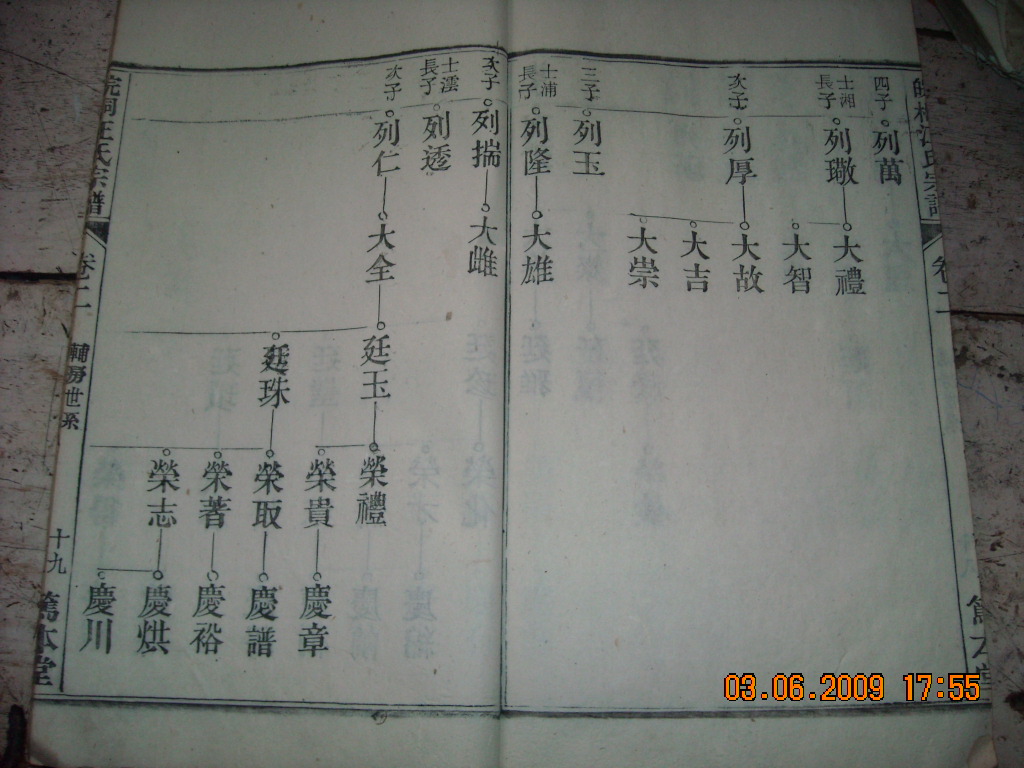 四子
列萬
士湘
長子
列璥
大禮
大智
次子
列厚
大故
大吉
大崇
三子
列玉
士浦
長子
列隆
大雄
次子
列揣
大雌
士澐
長子
列透
次子
列仁
大全
廷玉
榮禮
榮貴
慶章
廷珠
榮取
慶譜
榮著
慶裕
榮志
慶烘
慶川
汪氏宗譜
卷二
輔房世系
十九
篤本堂
03.06.2009 17:55